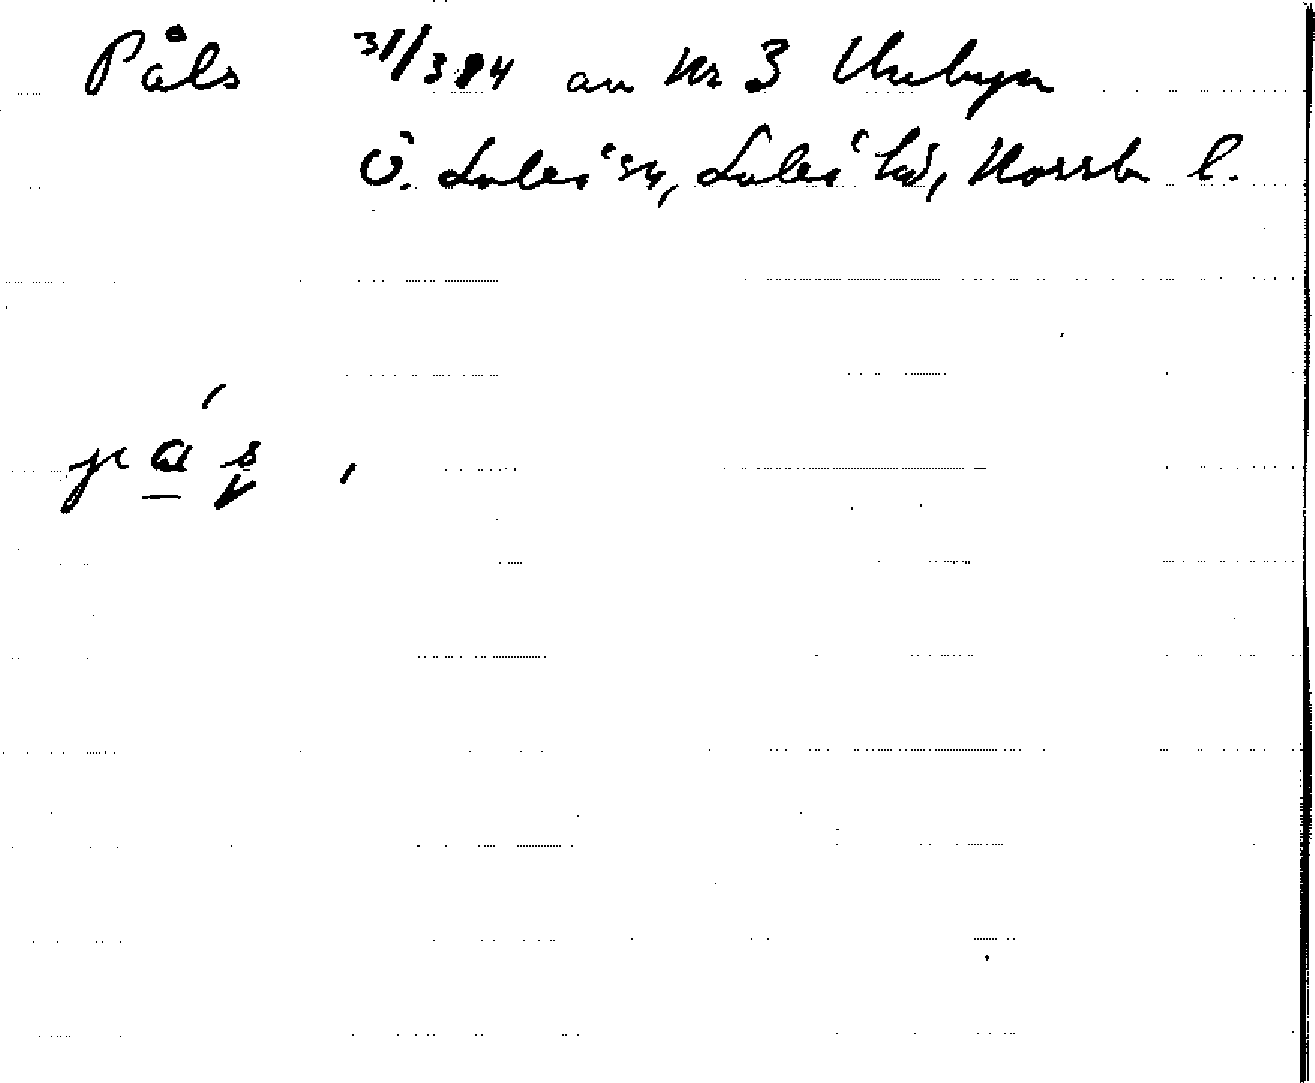 Påls 31/384 av Nr 3 Unbyn
Ö. Luleå sn, Luleå hd, Norrb l.